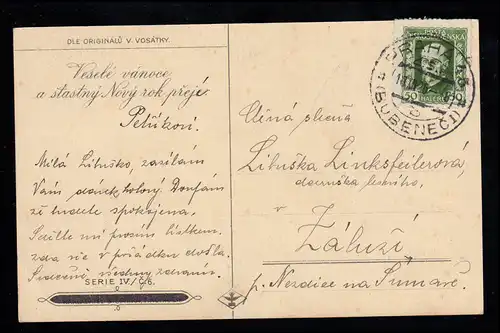 DLE ORIGINÁLŮ V. VOSÁTKY.
Veselé vánoce
a šťastný Nový rok přeje
Petříkovi.
Milá Libuško, zasílám
Vám dárek, Doufám
že budete spokojena.
Sdělte mi prosím lístkem
zda vše v pořádku došlo.
Srdečně všechny zdraví.
SERIE IV./Č.6.
ČESKOSLOVENSKÁ
50 HALÉŘŮ 50
PRAHA
(BUBENEČ)
Ctěná slečna
Libuška Linksfeilerová,
dceruška lesního,
v
Záluží
p. Nezdice na Šumavě